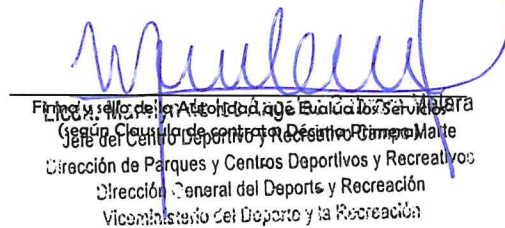 Firma y sello de la Autoridad que Evalúa los Servicios
(según Clausula de contrato Décima Primera)
Jefe del Centro Deportivo y Recreativo Campo Marte
Dirección de Parques y Centros Deportivos y Recreativos
Dirección General del Deporte y Recreación
Viceministerio del Deporte y la Recreación